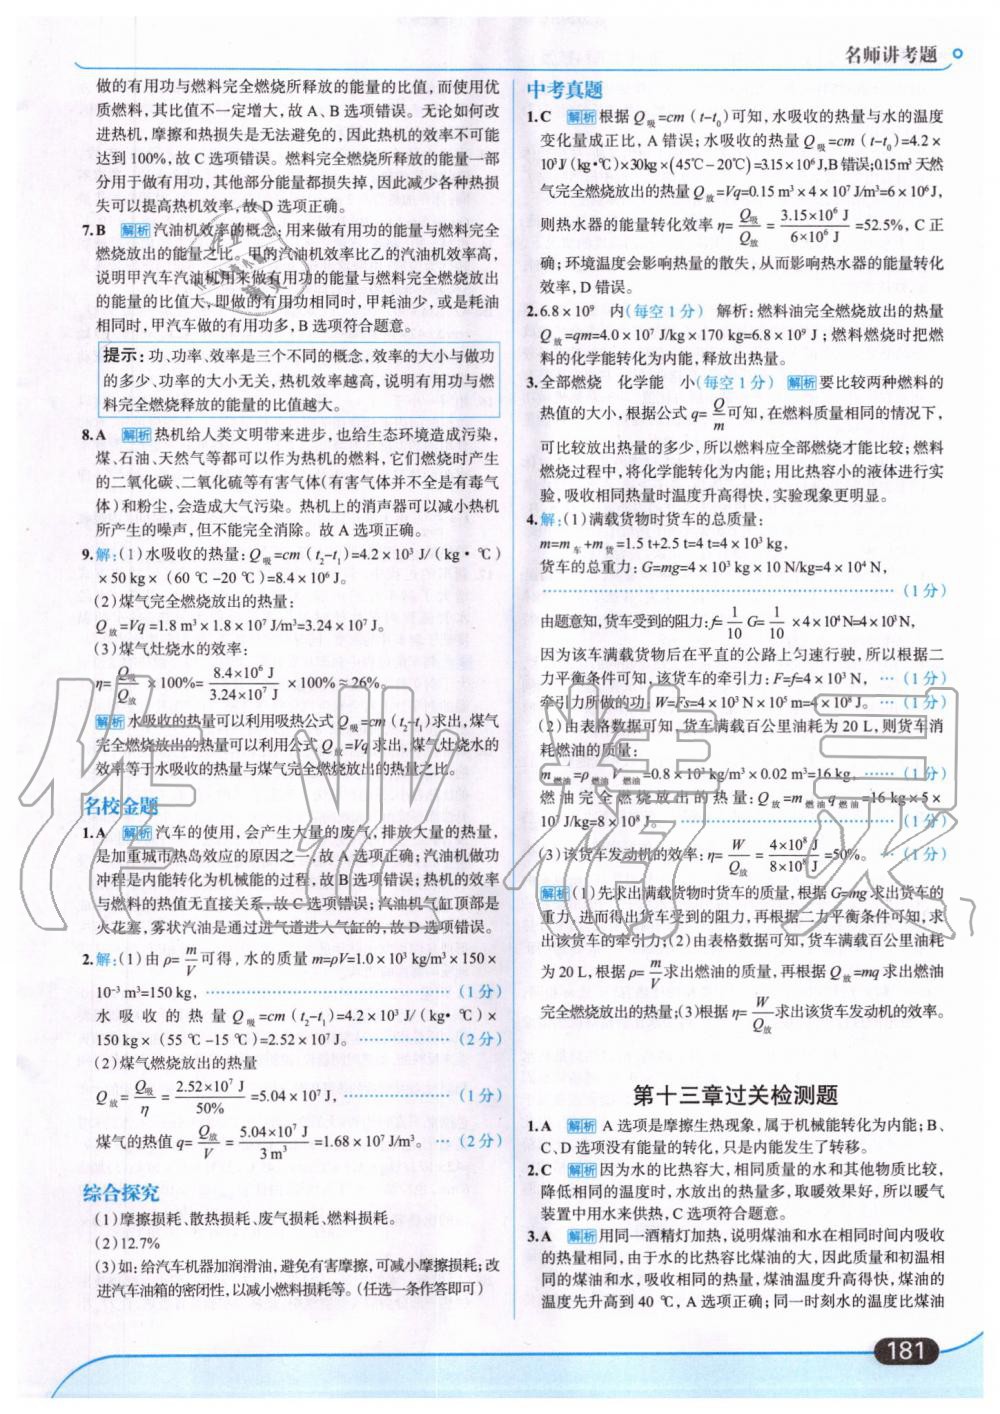 名师讲考题
做的有用功与燃料完全燃烧所释放的能量的比值,而使用优
质燃料,其比值不一定增大,故 A、B 选项错误。无论如何改
进热机,摩擦和热损失是无法避免的,因此热机的效率不可能
达到 100%,故 C 选项错误。燃料完全燃烧所释放的能量一部
分用于做有用功,其他部分能量都损失掉,因此减少各种热损
失可以提高热机效率,故 D 选项正确。
7.B 解析 汽油机效率的概念:用来做有用功的能量与燃料完全
燃烧放出的能量之比。甲的汽油机效率比乙的汽油机效率高,
说明甲汽车汽油机用来做有用功的能量与燃料完全燃烧放出
的能量的比值大,即做的有用功相同时,甲耗油少,或是耗油
相同时,甲汽车做的有用功多,B 选项符合题意。
提示:功、功率、效率是三个不同的概念,效率的大小与做功
的多少、功率的大小无关,热机效率越高,说明有用功与燃
料完全燃烧释放的能量的比值越大。
8.A 解析 热机给人类文明带来进步,也给生态环境造成污染,
煤、石油、天然气等都可以作为热机的燃料,它们燃烧时产生
的二氧化碳、二氧化硫等有害气体(有害气体并不全是有毒气
体)和粉尘,会造成大气污染。热机上的消声器可以减小热机
所产生的噪声,但不能完全消除。故 A 选项正确。
9.解:(1)水吸收的热量:Q吸=cm(t₂-t₁)=4.2×10³ J/(kg·℃)
×50 kg×(60 ℃-20 ℃)=8.4×10⁶ J。
(2)煤气完全燃烧放出的热量:
Q放=Vq=1.8 m³×1.8×10⁷ J/m³=3.24×10⁷ J。
(3)煤气灶烧水的效率:
η=Q吸/Q放×100%=8.4×10⁶ J/3.24×10⁷ J×100%≈26%。
解析 水吸收的热量可以利用吸热公式 Q吸=cm(t₂-t₁)求出,煤气
完全燃烧放出的热量可以利用公式 Q放=Vq 求出,煤气灶烧水的
效率等于水吸收的热量与煤气完全燃烧放出的热量之比。
名校金题
1.A 解析 汽车的使用,会产生大量的废气,排放大量的热量,
是加重城市热岛效应的原因之一,故 A 选项正确;汽油机做功
冲程是内能转化为机械能的过程,故 B 选项错误;热机的效率
与燃料的热值无直接关系,故 C 选项错误;汽油机气缸顶部是
火花塞,雾状汽油是通过进气道进入气缸的,故 D 选项错误。
2.解:(1)由 ρ=m/V 可得,水的质量 m=ρV=1.0×10³ kg/m³×150×
10⁻³ m³=150 kg,……(1 分)
水吸收的热量 Q吸=cm(t₂-t₁)=4.2×10³ J/(kg·℃)×
150 kg×(55 ℃-15 ℃)=2.52×10⁷ J。……(2 分)
(2)煤气燃烧放出的热量
Q放=Q吸/η=2.52×10⁷ J/50%=5.04×10⁷ J,……(1 分)
煤气的热值 q=Q放/V=5.04×10⁷ J/3 m³=1.68×10⁷ J/m³。…(2 分)
综合探究
(1)摩擦损耗、散热损耗、废气损耗、燃料损耗。
(2)12.7%
(3)如:给汽车机器加润滑油,避免有害摩擦,可减小摩擦损耗;改
进汽车油箱的密闭性,以减小燃料损耗等。(任选一条作答即可)
中考真题
1.C 解析 根据 Q吸=cm(t-t₀)可知,水吸收的热量与水的温度
变化量成正比,A 错误;水吸收的热量 Q吸=cm(t-t₀)=4.2×
10³J/(kg·℃)×30kg×(45℃-20℃)=3.15×10⁶J,B错误;0.15m³天然
气完全燃烧放出的热量 Q放=Vq=0.15 m³×4×10⁷ J/m³=6×10⁶J,
则热水器的能量转化效率 η=Q吸/Q放=3.15×10⁶ J/6×10⁶ J=52.5%,C 正
确;环境温度会影响热量的散失,从而影响热水器的能量转化
效率,D 错误。
2.6.8×10⁹ 内(每空 1 分) 解析:燃料油完全燃烧放出的热量
Q放=qm=4.0×10⁷ J/kg×170 kg=6.8×10⁹ J;燃料燃烧时把燃
料的化学能转化为内能,释放出热量。
3.全部燃烧 化学能 小(每空 1 分) 解析 要比较两种燃料的
热值的大小,根据公式 q=Q/m可知,在燃料质量相同的情况下,
可比较放出热量的多少,所以燃料应全部燃烧才能比较;燃料
燃烧过程中,将化学能转化为内能;用比热容小的液体进行实
验,吸收相同热量时温度升高得快,实验现象更明显。
4.解:(1)满载货物时货车的总质量:
m=m车+m货=1.5 t+2.5 t=4 t=4×10³ kg,
货车的总重力:G=mg=4×10³ kg×10 N/kg=4×10⁴ N,
……(1 分)
由题意知,货车受到的阻力:f=1/10 G=1/10×4×10⁴N=4×10³N,
因为该车满载货物后在平直的公路上匀速行驶,所以根据二
力平衡条件可知,该货车的牵引力:F=f=4×10³ N,…(1 分)
牵引力所做的功:W=Fs=4×10³ N×10⁵ m=4×10⁸ J。…(1 分)
(2)由表格数据可知,货车满载百公里油耗为 20 L,则货车消
耗燃油的质量:
m燃油=ρ燃油V燃油=0.8×10³ kg/m³×0.02 m³=16 kg,……(1 分)
燃油完全燃烧放出的热量:Q放=m燃油q燃油=16 kg×5×
10⁷ J/kg=8×10⁸ J。……(1 分)
(3)该货车发动机的效率:η=W/Q放=4×10⁸ J/8×10⁸ J=50%。…(1 分)
解析 (1)先求出满载货物时货车的质量,根据 G=mg 求出货车的
重力,进而得出货车受到的阻力,再根据二力平衡条件可知,求
出该货车的牵引力;(2)由表格数据可知,货车满载百公里油耗
为 20 L,根据 ρ=m/V求出燃油的质量,再根据 Q放=mq 求出燃油
完全燃烧放出的热量;(3)根据 η=W/Q放求出该货车发动机的效率。
第十三章过关检测题
1.A 解析 A 选项是摩擦生热现象,属于机械能转化为内能;B、
C、D 选项没有能量的转化,只是内能发生了转移。
2.C 解析 因为水的比热容大,相同质量的水和其他物质比较,
降低相同的温度时,水放出的热量多,取暖效果好,所以暖气
装置中用水来供热,C 选项符合题意。
3.A 解析 用同一酒精灯加热,说明煤油和水在相同时间内吸收
的热量相同,由于水的比热容比煤油的大,因此质量和初温相
同的煤油和水,吸收相同的热量,煤油温度升高得快,煤油的
温度先升高到 40 ℃,A 选项正确;同一时刻水的温度比煤油
181
作业精灵